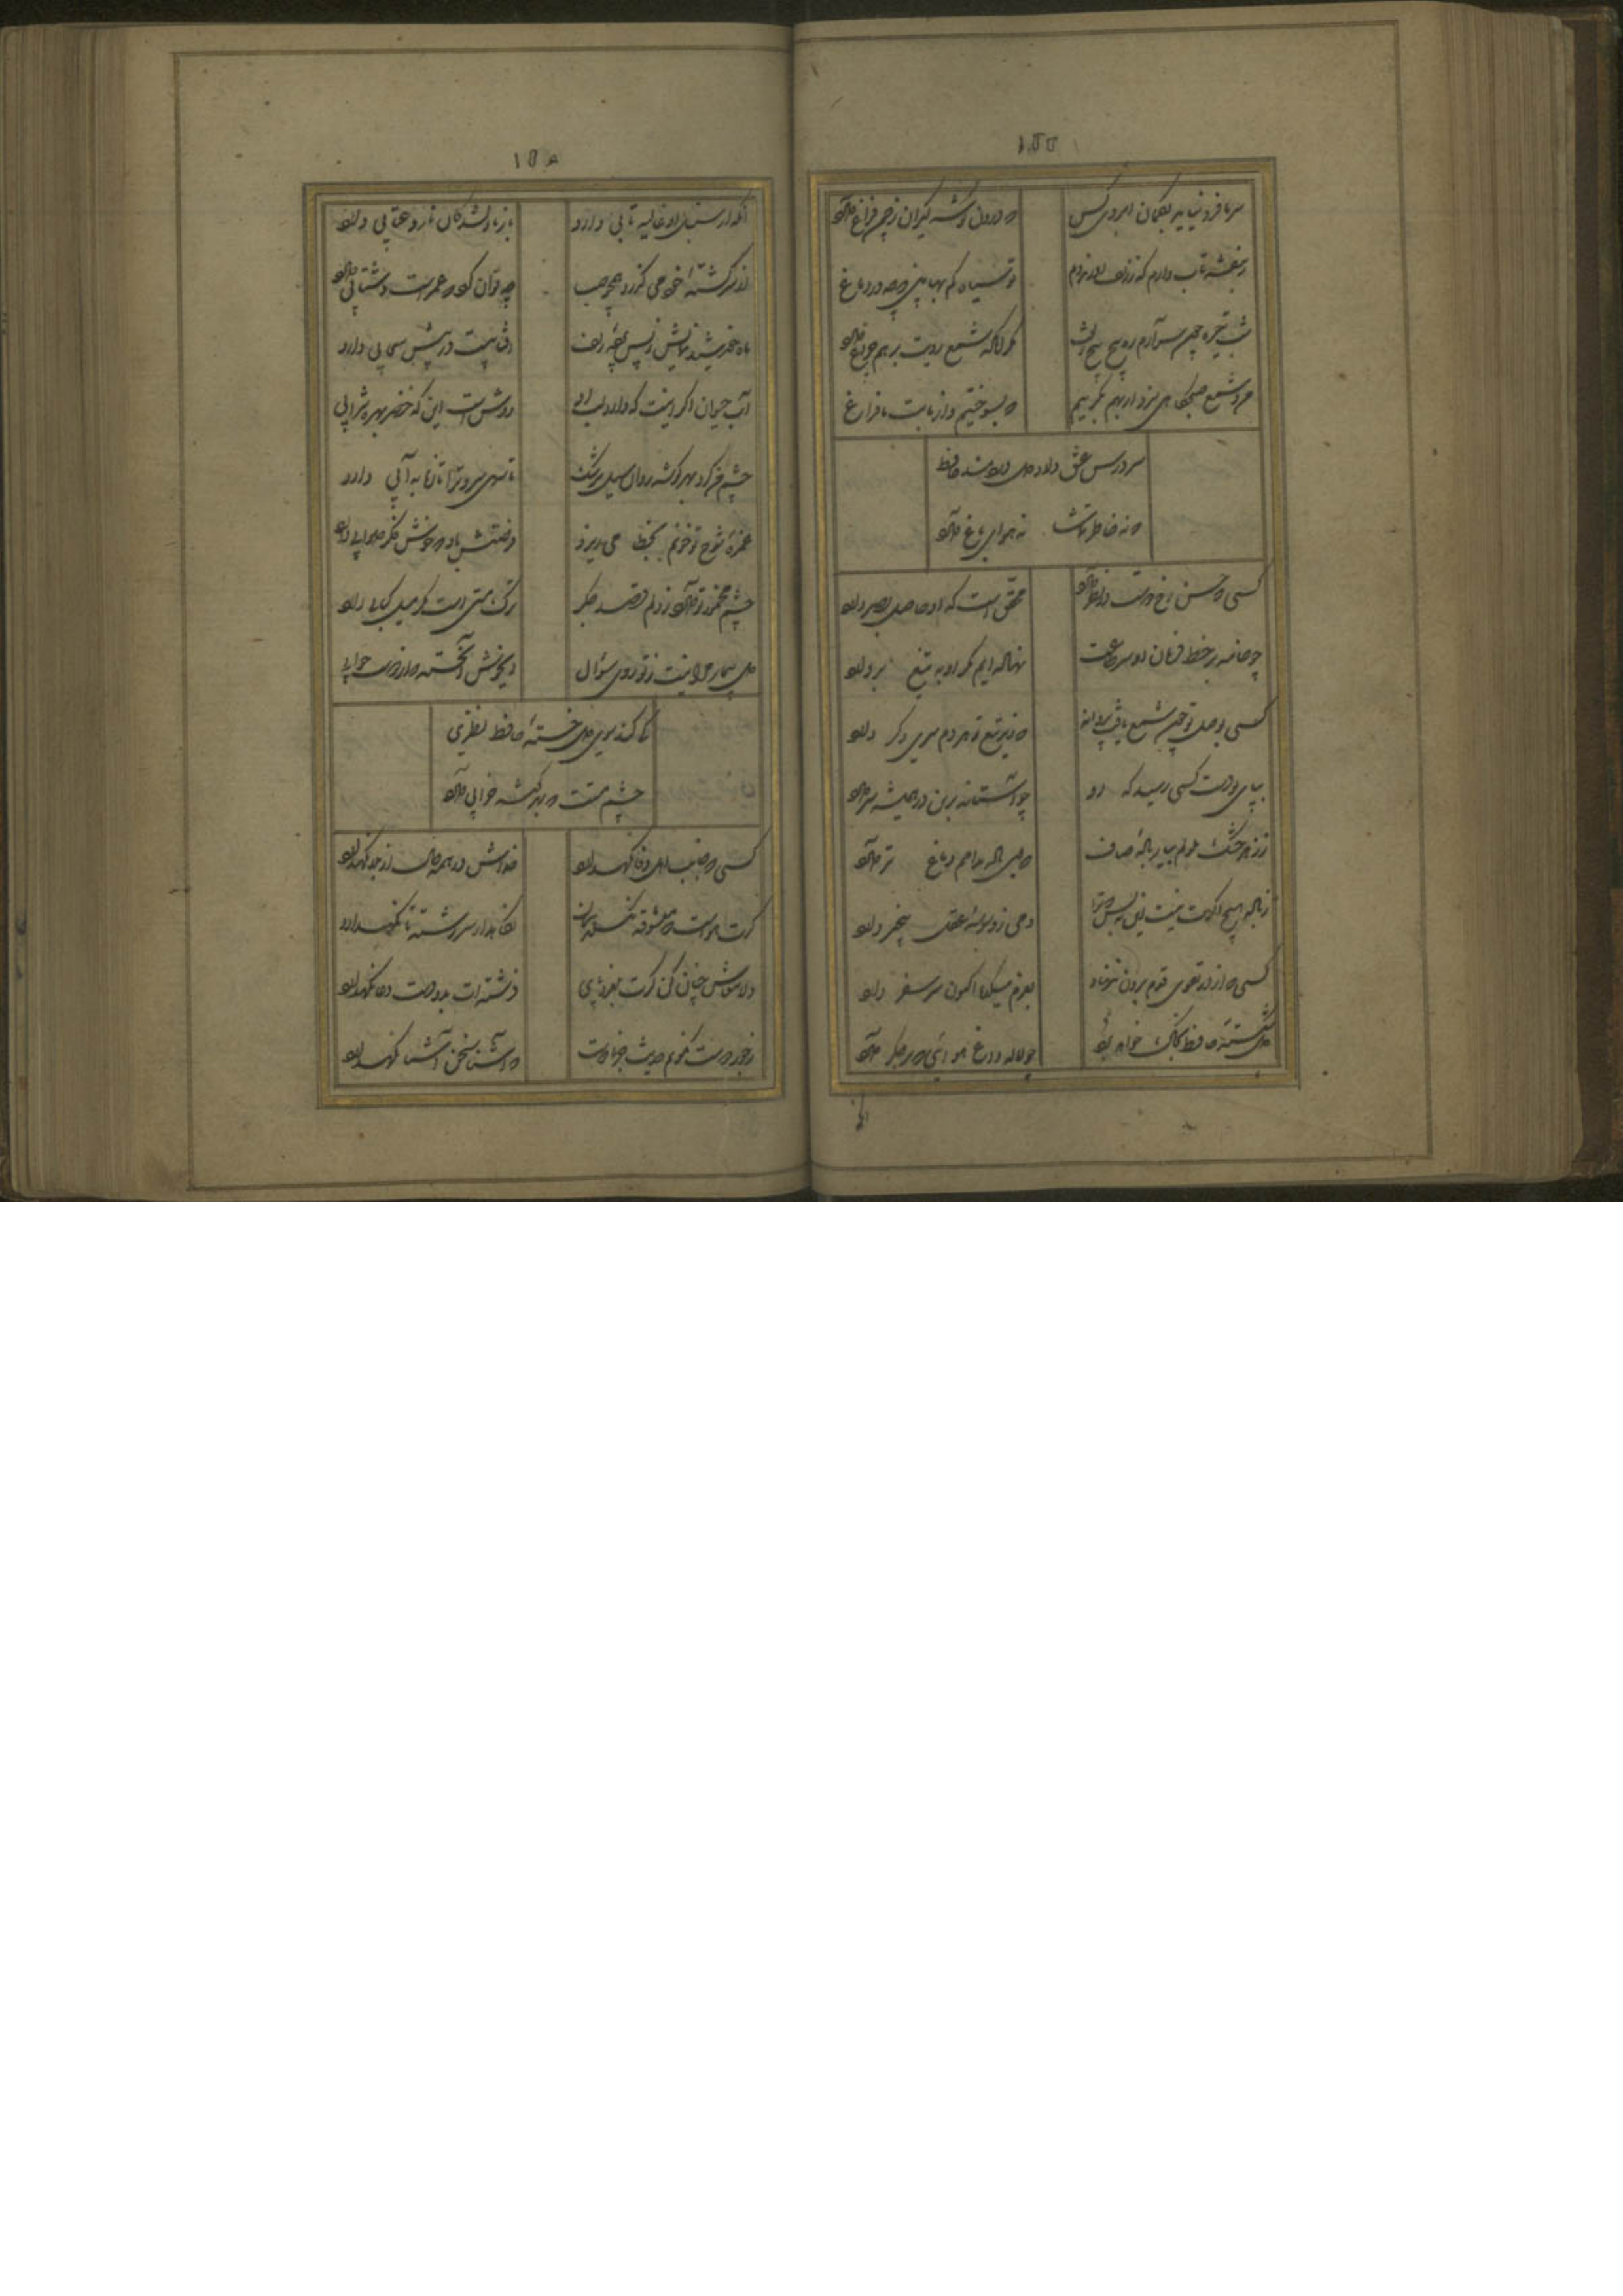 ١٥٥
سر ما فرو نیاید بکمان ابروی کس که درون گوشه گیران ز جهان فراغ دارد
ز بنفشه تاب دارم که ز زلف او زند دم تو سیاه کم بها بین که چه در دماغ
شب تیره چون سرآرم ره پیچ پیچ زلفش مگر آنکه شمع رویت برهم چراغ دارد
من و شمع صبحگاهی سزد ار بهم بگرییم که بسوختیم و از ما بت ما فراغ
سر درس عشق دارد دل دردمند حافظ
که نه خاطر تماشا نه هوای باغ دارد
کسی که حسن رخ دوست در نظر دارد محقق است که او حاصل بصر دارد
چو خامه بر خط فرمان او سر طاعت نهاده ایم مگر او به تیغ بردارد
کسی بوصل تو چون شمع یافت پروانه که زیر تیغ تو هر دم سری دگر دارد
بپای بوست کسی رسید که او چو آستانه برین در همیشه سر دارد
ز زهد خشک ملولم بیار باده صاف که بوی باده مدامم دماغ تر دارد
ز باده هیچ اگرت نیست این نه بس که ترا دمی ز وسوسه عقل بیخبر دارد
کسی که از در تقوی قدم برون ننهاد بعزم میکده اکنون سر سفر دارد
دل شکسته حافظ بخاک خواهد برد چو لاله داغ هوائی که بر جگر دارد
آنکه از سنبل او غالیه تابی دارد باز با دلشدگان ناز و عتابی دارد
از سر کشته خود می گذرد همچو چه توان کرد که عمرست و شتابی دارد
ماه خورشید نمایش ز پس پرده زلف آفتابیست که در پیش سحابی دارد
آب حیوان اگر اینست که دارد لب او روشن است این که خضر بهره سرابی
چشم من کرد بهر گوشه روان سیل سرشک تا سهی سرو ترا تازه به آبی دارد
غمزه شوخ تو خونم بخطا می ریزد فرصتش باد که خوش فکر صوابی دارد
چشم مخمور تو دارد ز دلم قصد جگر ترک مست است مگر میل کبابی دارد
دل بیمار مرا نیست ز تو روی سؤال ای خوش آن خسته که از دوست جوابی
کی کند سوی دل خسته حافظ نظری
چشم مستت که بهر گوشه خرابی دارد
کسی که جانب اهل وفا نگهدارد خداش در همه حال از بلا نگهدارد
گرت هواست که معشوقه نگسلد پیمان نگاهدار سر رشته تا نگهدارد
دلا معاش چنان کن که گرت بلغزد پای فرشته ات بدو دست دعا نگهدارد
ز درد دوست نگویم حدیث جز با دوست که آشنا سخن آشنا نگهدارد